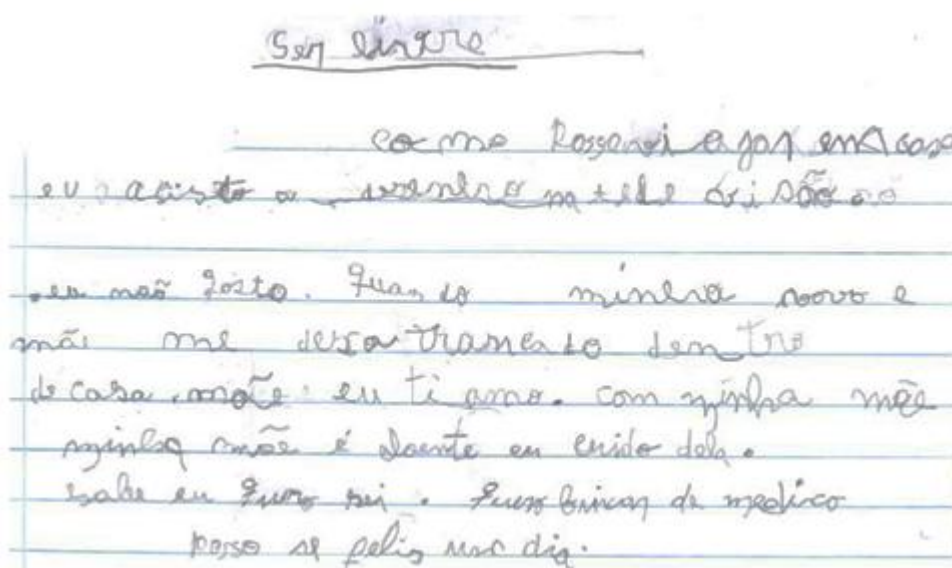 Ser livre
eu a casa
eu acisto a na tele vi são
eu naõ gosto. Quando minha e
mãi me dexa trancado dentro
de casa. mãe eu ti amo. com minha mãe
minha mãe é doente eu cuido dela.
sabe eu quro . quro brincar de medico
posso se felis um dia.